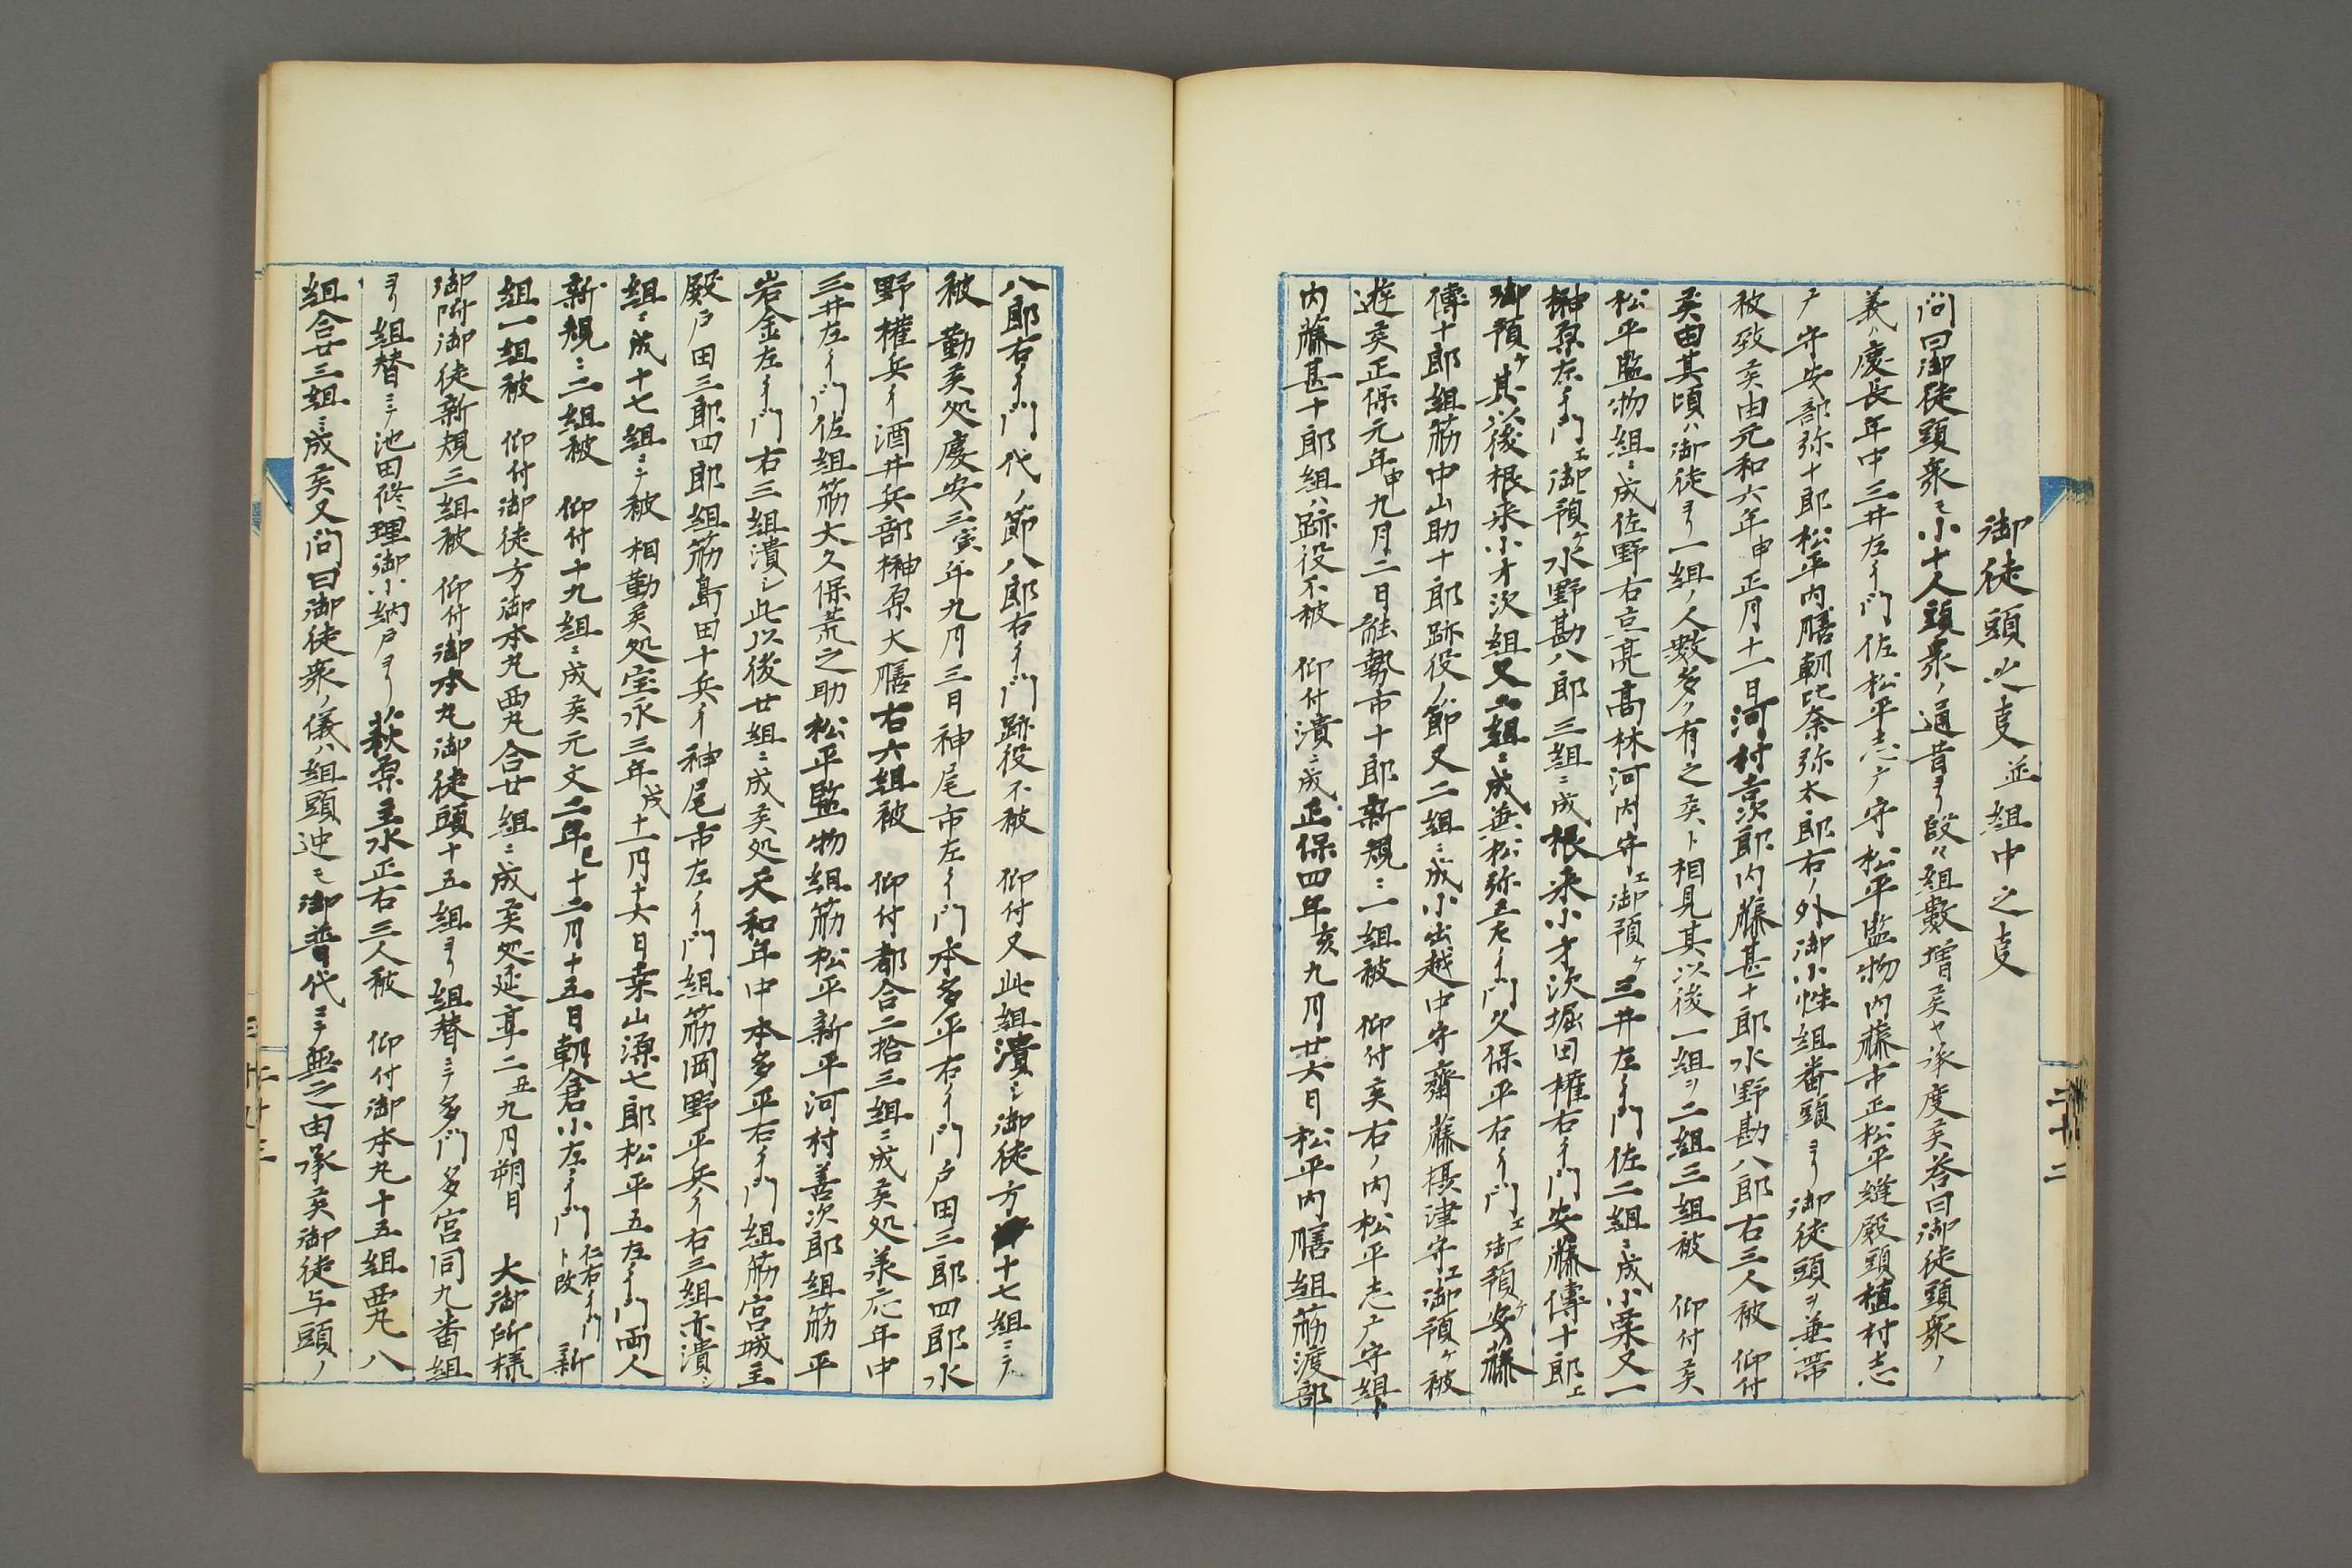 御徒頭之支並組中之支
問曰御徒頭衆モ小十人頭衆ノ通昔ヨリ段々組數増矦ヤ承度矦答曰御徒頭衆ノ
義ハ慶長年中三井左ヱ門佐松平志广守松平監物内藤市正松平縫殿頭植村志
广守安部弥十郎松平内膳朝比奈弥太郎右ノ外御小性組番頭ヨリ御徒頭ヲ兼帯
被致矦由元和六年申正月十一日河村善次郎内藤甚十郎水野勘八郎右三人被 仰付
矦由其頃ハ御徒ヨリ一組ノ人數多ク有之矦ト相見其以後一組ヲ二組三組被 仰付矦
松平監物組ニ成佐野右京亮高林河内守エ御預ケ三井左ヱ門佐二組ニ成小栗又一
榊原左ヱ門エ御預ケ水野勘八郎三組ニ成根来小才次堀田権右ヱ門安藤傳十郎エ
御預ケ其以後根来小才次組又二組ニ成兼松弥五左ヱ門久保平右ヱ門エ御預ケ安藤
傳十郎組筋中山助十郎跡役ノ節又二組ニ成小出越中守齋藤摂津守エ御預ケ被
遊矦正保元年申九月二日能勢市十郎新規ニ一組被 仰付矦右ノ内松平志广守組ト
内藤甚十郎組ハ跡役不被 仰付潰ニ成正保四年亥九月廿六日松平内膳組筋渡部
八郎右ヱ門代ノ節八郎右ヱ門跡役不被 仰付又此組潰シ御徒方十七組ニテ
被 勤矦処慶安三寅年九月三日神尾市左ヱ門本多平右ヱ門戸田三郎四郎水
野權兵ヱ酒井兵部榊原大膳右六組被 仰付都合二拾三組ニ成矦処美応年中
三井左ヱ門佐組筋大久保荒之助松平監物組筋松平新平河村善次郎組筋平
岩金左ヱ門右三組潰シ此以後廿組ニ成矦処天和年中本多平右ヱ門組筋宮城主
殿戸田三郎四郎組筋島田十兵ヱ神尾市左ノヱ門組筋岡野平兵ヱ右三組亦潰シ
組ニ成十七組ニテ被相勤矦処宝永三年戌十一月十六日桒山源七郎松平五左ヱ門両人
新規ニ二組被 仰付十九組ニ成矦元文二年巳十二月十五日朝倉小左ヱ門仁右ヱ門ト改新
組一組被 仰付御徒方御本丸西丸合廿組ニ成矦処延享二丑九月朔日 大御所様
御附御徒新規三組被 仰付御本丸御徒頭十五組ヨリ組替ニテ多門多宮同九番組
ヨリ組替ニテ池田修理御小納戸ヨリ萩原主水正右三人被 仰付御本丸十五組西丸八
組合廿三組ニ成矦又問曰御徒衆ノ儀ハ組頭迚モ御普代ニテ無之由承矦御徒与頭ノ
二十二
二十三